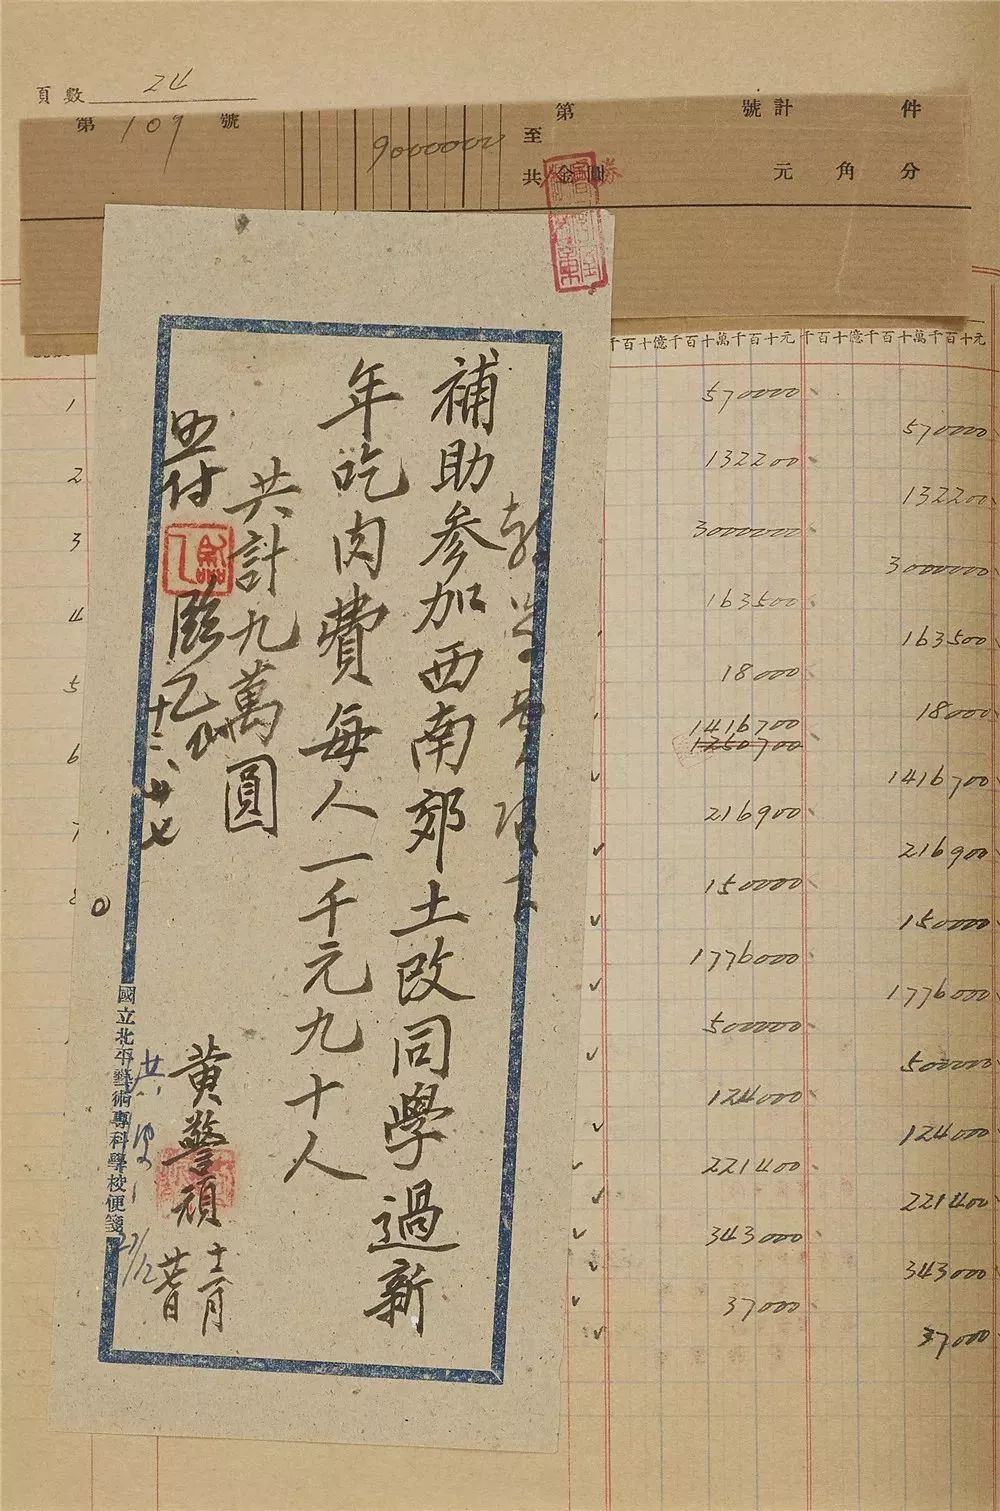 頁數 24
第 109 號
90000000
第 號計 件
至
共 金圓券 元 角 分
千百十億千百十萬千百十元
千百十億千百十萬千百十元
補助参加西南郊土改同學過新
年吃肉費每人一千元九十人
共計九萬圓
照付
十二、廿七
黄警頑
十二月
廿七日
27/12
國立北平藝術專科學校便箋
1
2
3
4
5
6
7
570000
570000
132200
132200
3000000
3000000
163500
163500
18000
18000
1416700
1250700
1416700
216900
216900
150000
150000
1776000
1776000
500000
500000
124000
124000
221400
221400
343000
343000
37000
37000